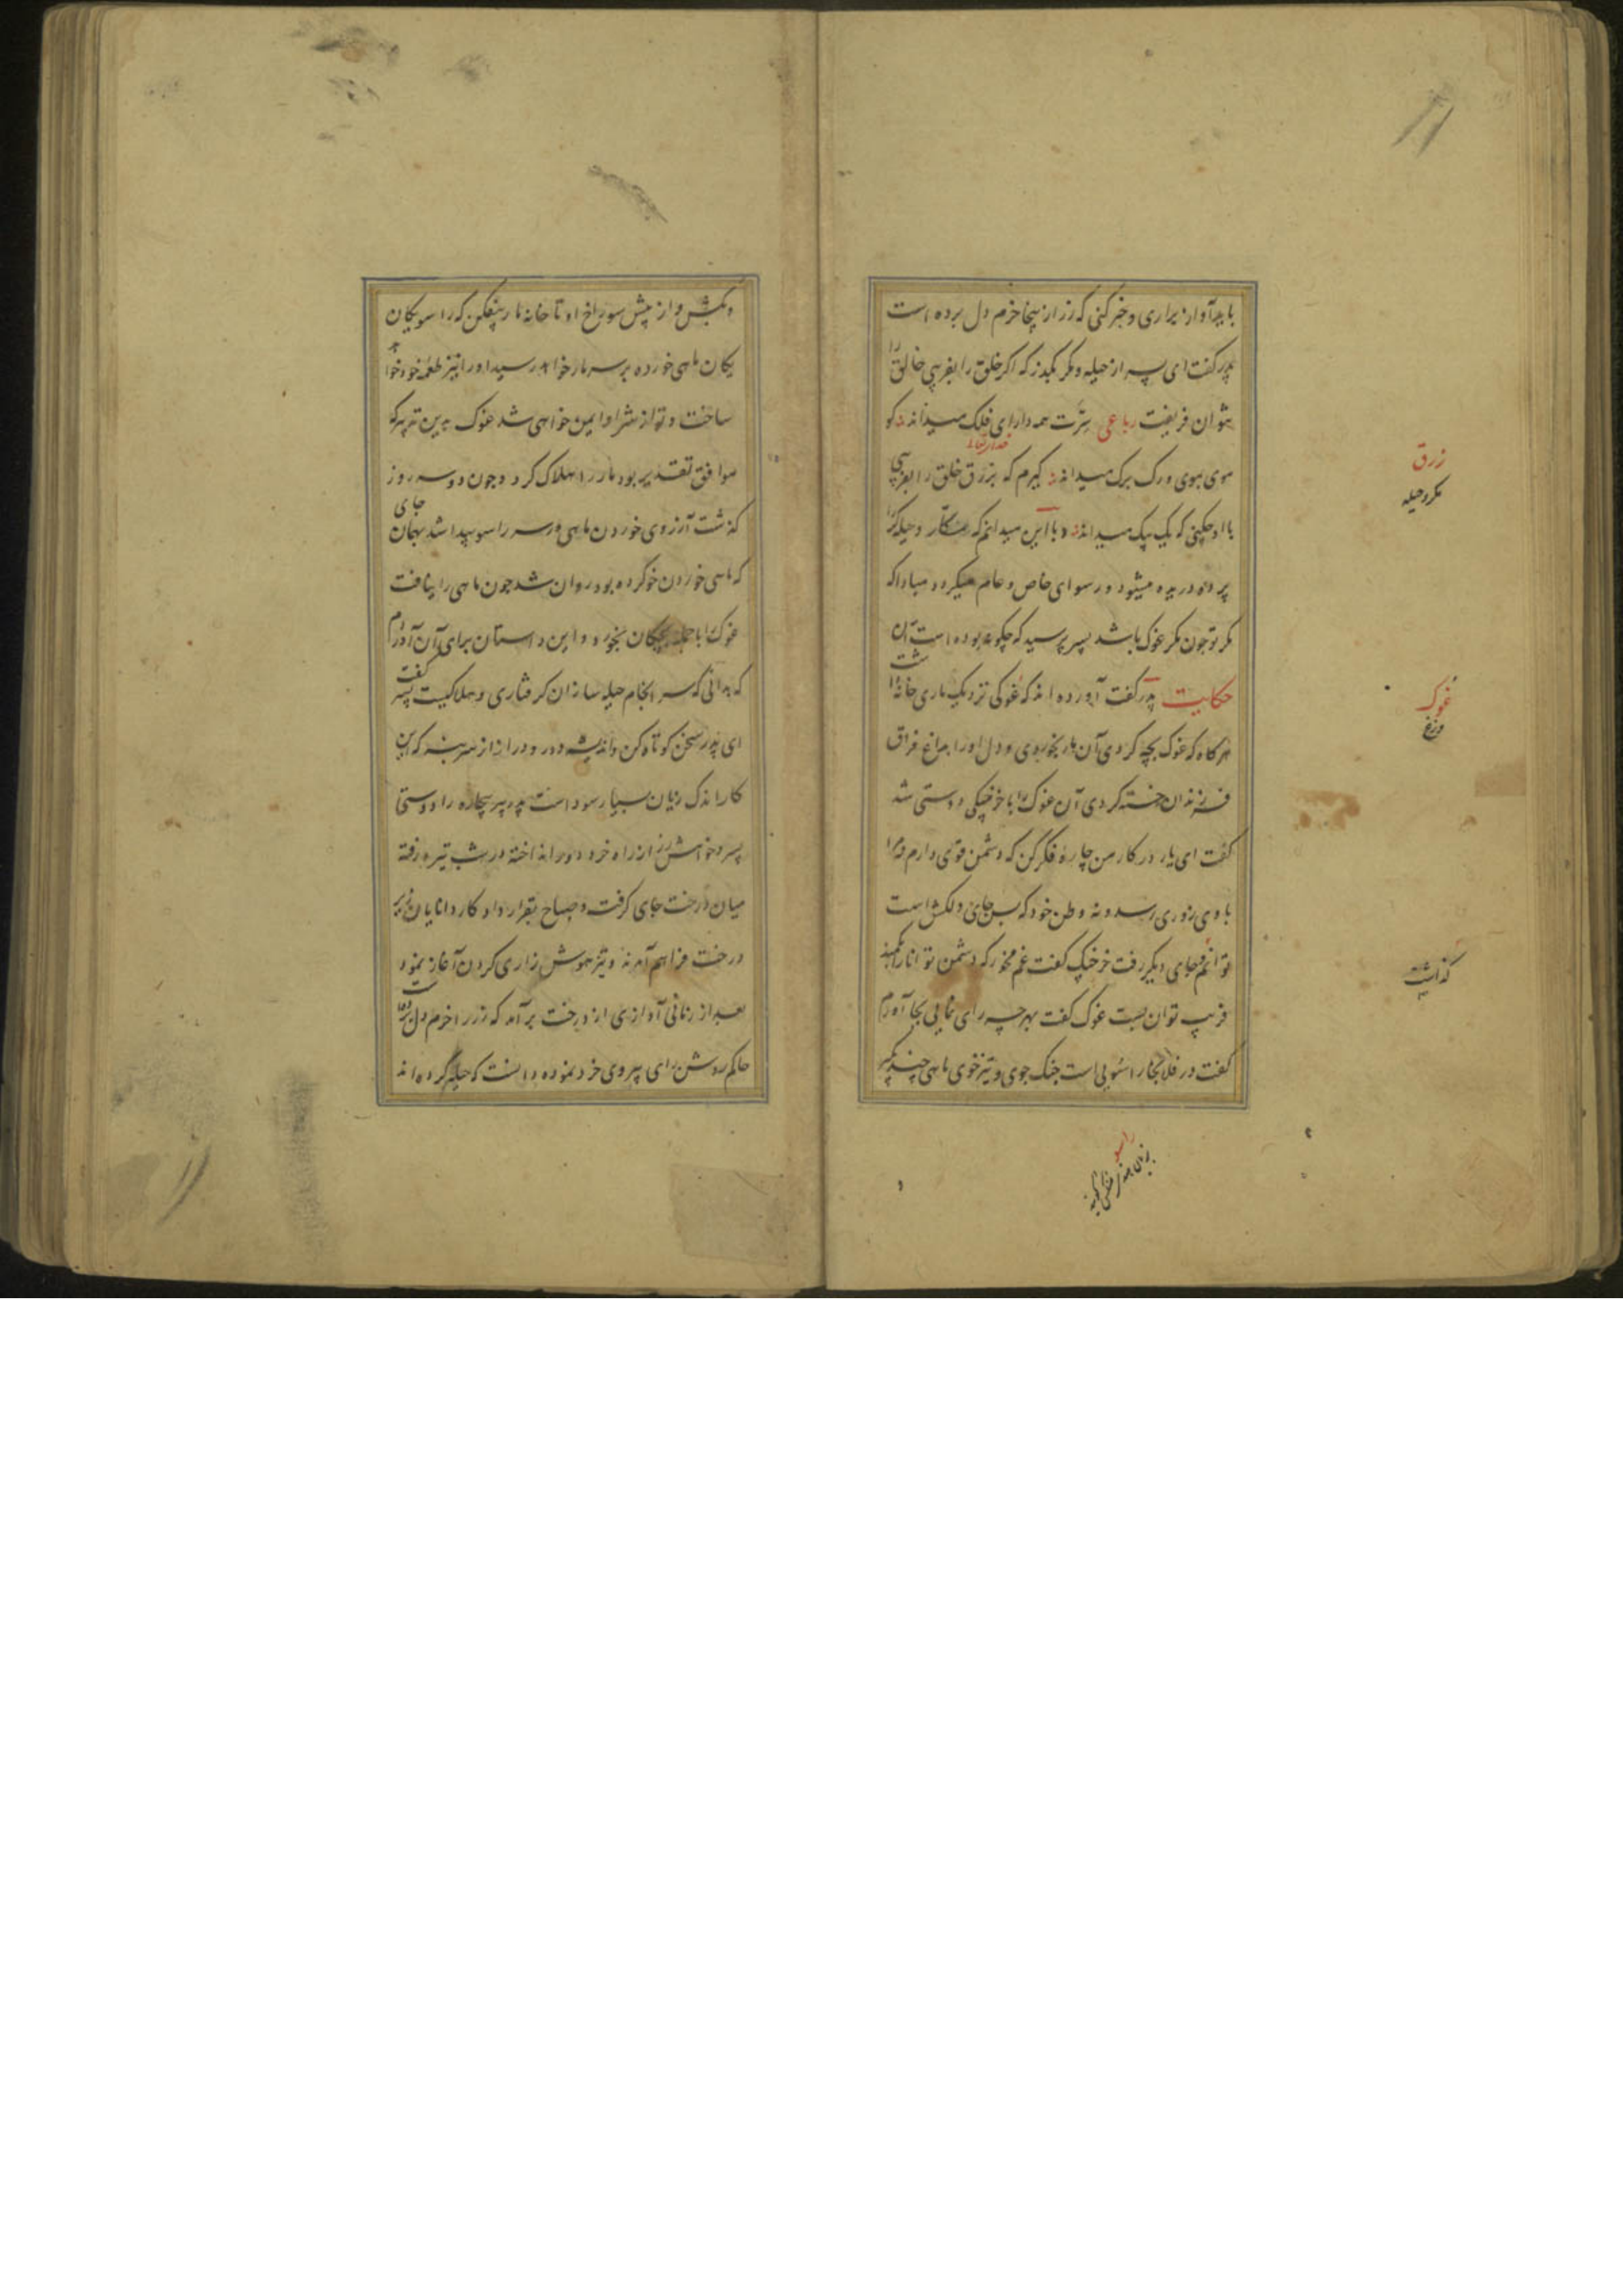 باید آواز براری و خبر کنی که زر از نیجا خرم دل برده است
پدر گفت ای پسر از حیله و مکر بگذر که اگر خلق را بفریبی خالق را
نتوان فریفت رباعی سرت همه دارای فلک میداند کو
موی بموی و رگ برگ میداند گیرم که بزرق خلق را بفریبی
با او چکنی که یک بیک میداند و با این میدانم که مکار و حیله گر را
پرده دریده میشود و رسوای خاص و عام میگردد مبادا که
مکر تو چون مکر غوک باشد پسر پرسید که چکونه بوده است آن
حکایت پدر گفت آورده اند که غوکی نزدیک ماری خانه داشت
هرگاه که غوک بچه کردی آن مار بخوردی و دل او را بداغ فراق
فرزندان خسته کردی آن غوک را با خرچنگی دوستی شد
گفت ای یار در کار من چاره فکر کن که دشمن قوی دارم نه مرا
با وی زوری رسد و نه وطن خود که بس جای دلکش است
توانم بجای دیگر رفت خرچنگ گفت غم مخور که دشمن توانا را بکمند
فریب توان بست غوک گفت بهرچه رای نمایی بجا آورم
گفت در فلانجا راسویی است جنگ جوی و تیزخوی ماهی چند بگیر
زرق
مکر و حیله
غوک
وزغ
گذاشت
راسو
و بکش و از پیش سوراخ او تا خانه مار بیفکن که راسو یکان
یکان ماهی خورده بر سر مار خواهد رسید او را نیز طعمه خود خواهد
ساخت و تو از شر او ایمن خواهی شد غوک بدین تدبیر که
موافق تقدیر بود مار را هلاک کرد و چون دو سه روز
گذشت آرزوی خوردن ماهی در سر راسو پیدا شد بهمان جای
که ماهی خوردن خو کرده بود روان شد چون ماهی را نیافت
غوک را با جمله بچگان بخورد و این داستان برای آن آوردم
که بدانی که سرانجام حیله سازان گرفتاری و هلاکیست پسر گفت
ای پدر سخن کوتاه کن و اندیشه دور و دراز از سر بنه که این
کار اندک زیان بسیار سود است پدر پیر بیچاره را دوستی
پسر و خواهش زر از راه خرد دور انداخته در شب تیره رفته
میان درخت جای گرفت و صباح بقرارداد کار دانایان زیر
درخت فراهم آمدند و تیزهوش زاری کردن آغاز نمود
بعد از زمانی آوازی از درخت برآمد که زر را خرم دل برده است
حاکم روشن رای پیروی خرد نموده دانست که حیله کرده اند